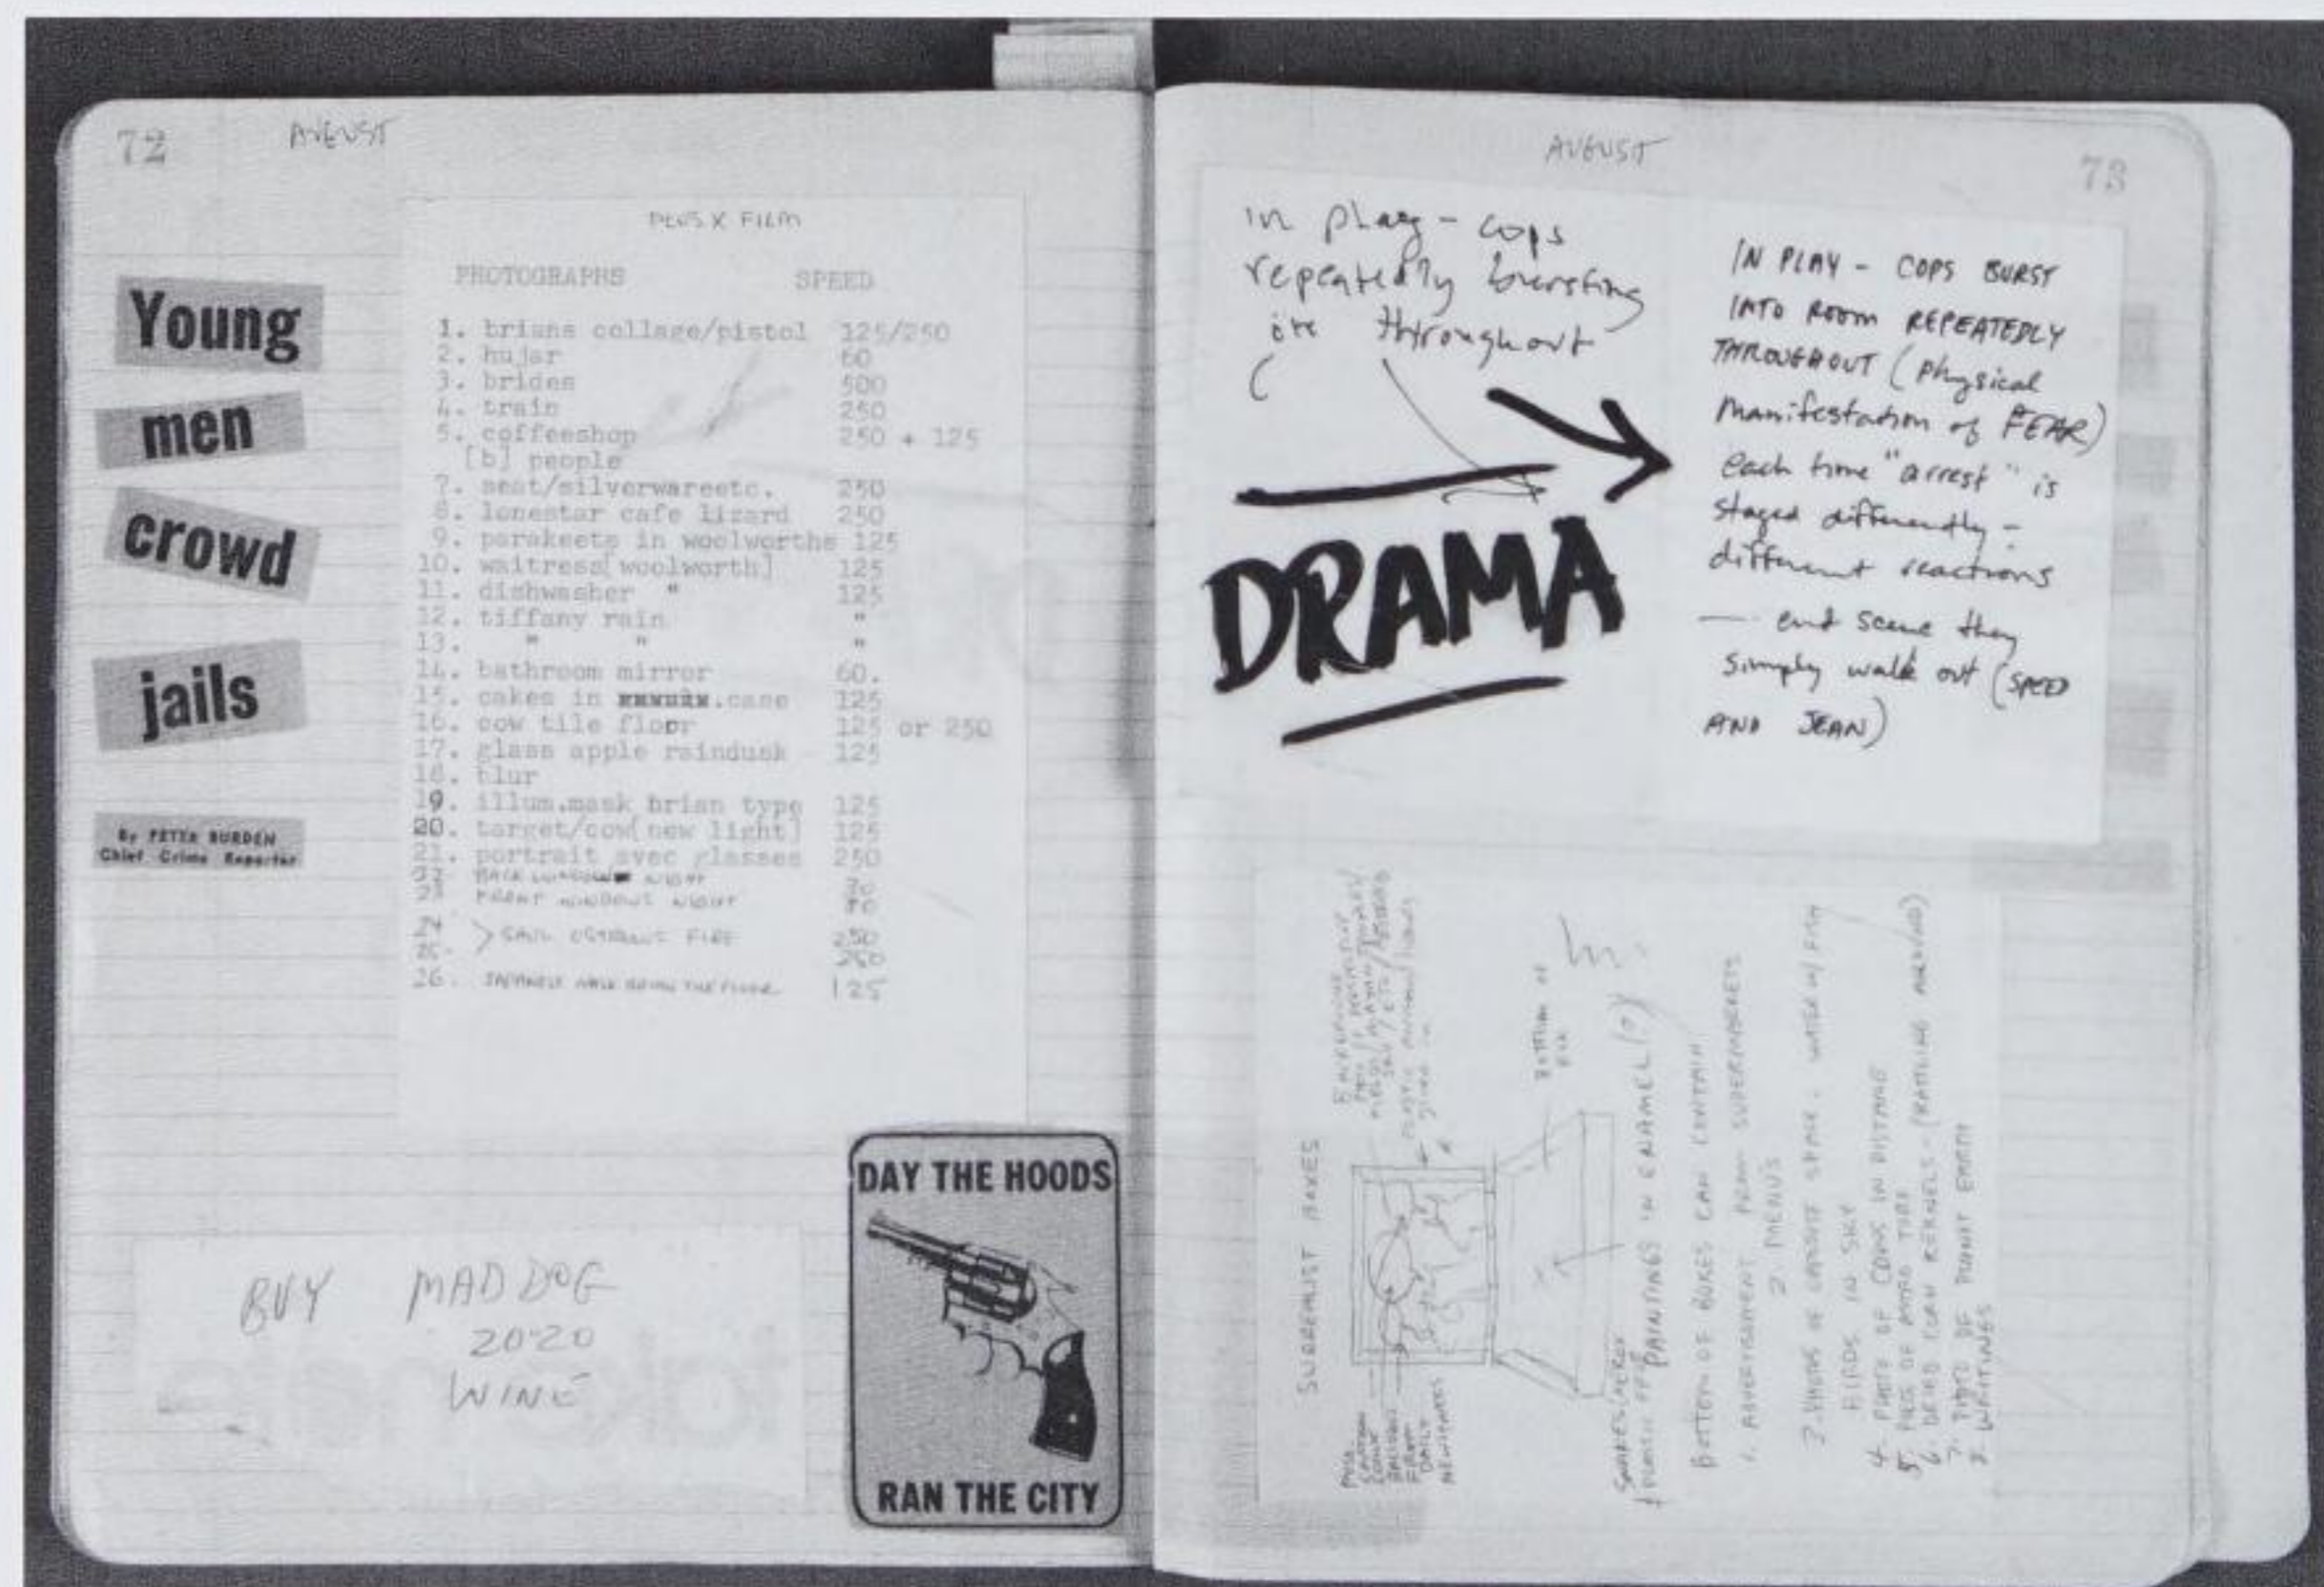 72
AUGUST
Young
men
crowd
jails
By PETER BURDEN
Chief Crime Reporter
PLUS X FILM
PHOTOGRAPHS SPEED
1. brians collage/pistol 125/250
2. hujar 60
3. brides 500
4. train 250
5. coffeeshop 250 + 125
[b] people
7. seat/silverwareetc. 250
8. lonestar cafe lizard 250
9. parakeets in woolworths 125
10. waitress[woolworth] 125
11. dishwasher " 125
12. tiffany rain "
13. " " "
14. bathroom mirror 60.
15. cakes in .case 125
16. cow tile floor 125 or 250
17. glass apple raindusk 125
18. blur
19. illum.mask brian type 125
20. target/cow[new light] 125
21. portrait avec glasses 250
22 BACK WINDOW NIGHT
23 FRONT WINDOWS NIGHT
24 > FIRE 250
25. 250
26. JAPANESE 125
BUY MAD DOG
2020
WINE
DAY THE HOODS
RAN THE CITY
AUGUST
73
in play - cops
repeatedly bursting
in throughout
(
DRAMA
IN PLAY - COPS BURST
INTO ROOM REPEATEDLY
THROUGHOUT (physical
manifestation of FEAR)
each time "arrest" is
staged differently -
different reactions
— end scene they
simply walk out (SPEED
AND JEAN)
SURREALIST BOXES
BACKGROUND
plastic animal heads
glued in
BOTTOM OF
BOX
FROM
DAILY
NEWSPAPERS
PAINTINGS IN ENAMEL (?)
BOTTOM OF BOXES CAN CONTAIN
1. ADVERTISEMENT FROM SUPERMARKETS
2. MENUS
3. VIEWS OF SPACE. WATER W/ FISH
BIRDS IN SKY
4. PHOTO OF COWS IN DISTANCE
5. PIECE OF AUTO TIRE
6. DRIED CORN KERNELS - (RATTLING AROUND)
7. EARTH
8. WRITINGS